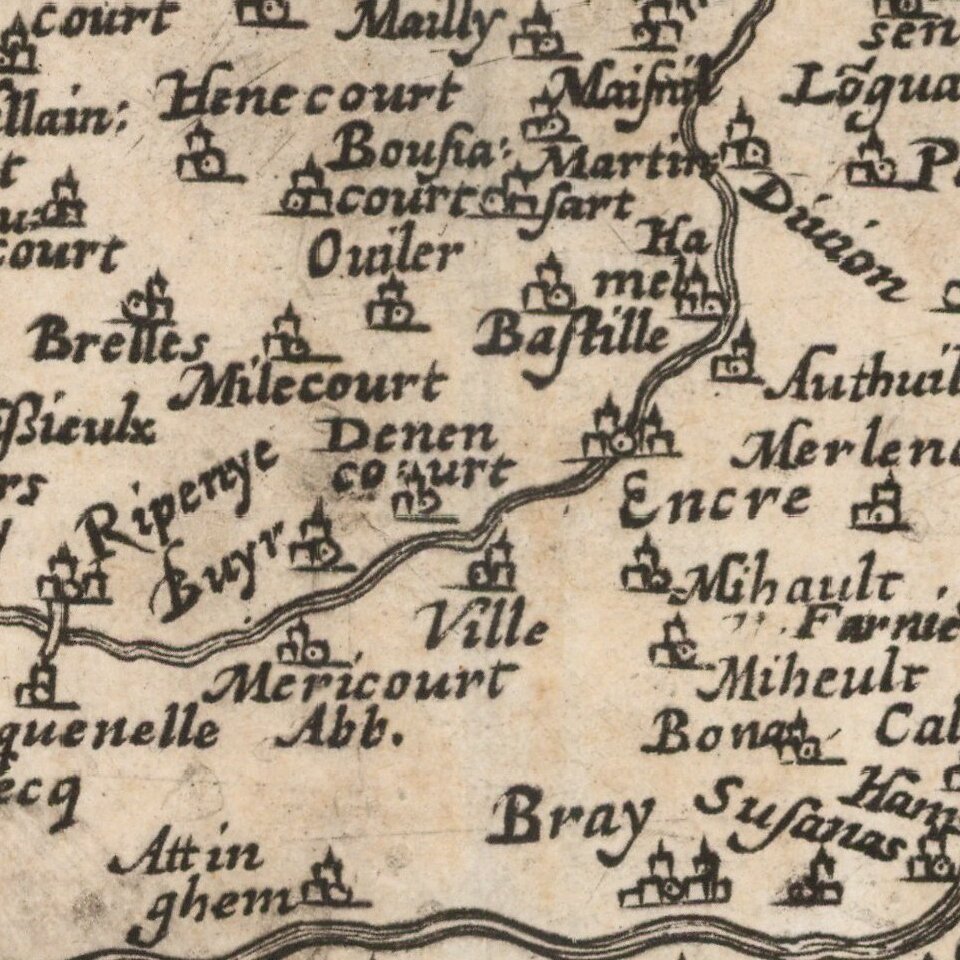 court
Mailly
sen
Maiſnil
Lõqua
llain:
Henecourt
Bouſia:
court
Martin
ſart
Diuion
court
Ouiler
Ha
mel
Baſtille
Brelles
Milecourt
Authuil
ßieulx
Denen
court
Merlen
rs
Ripenye
Encre
Buyr
Mihault
Farnie
Ville
Mericourt
Abb.
Miheult
quenelle
Bona
Cal
ecq
Bray
Suſanas
Ham
Attin
ghem